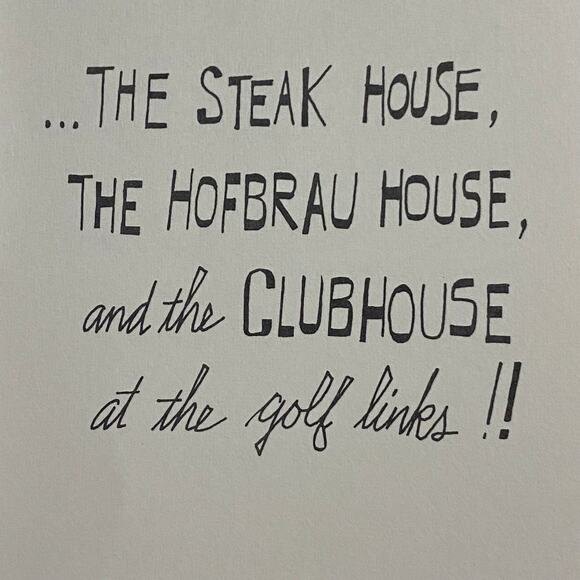 ...THE STEAK HOUSE,
THE HOFBRAU HOUSE,
and the CLUBHOUSE
at the golf links !!